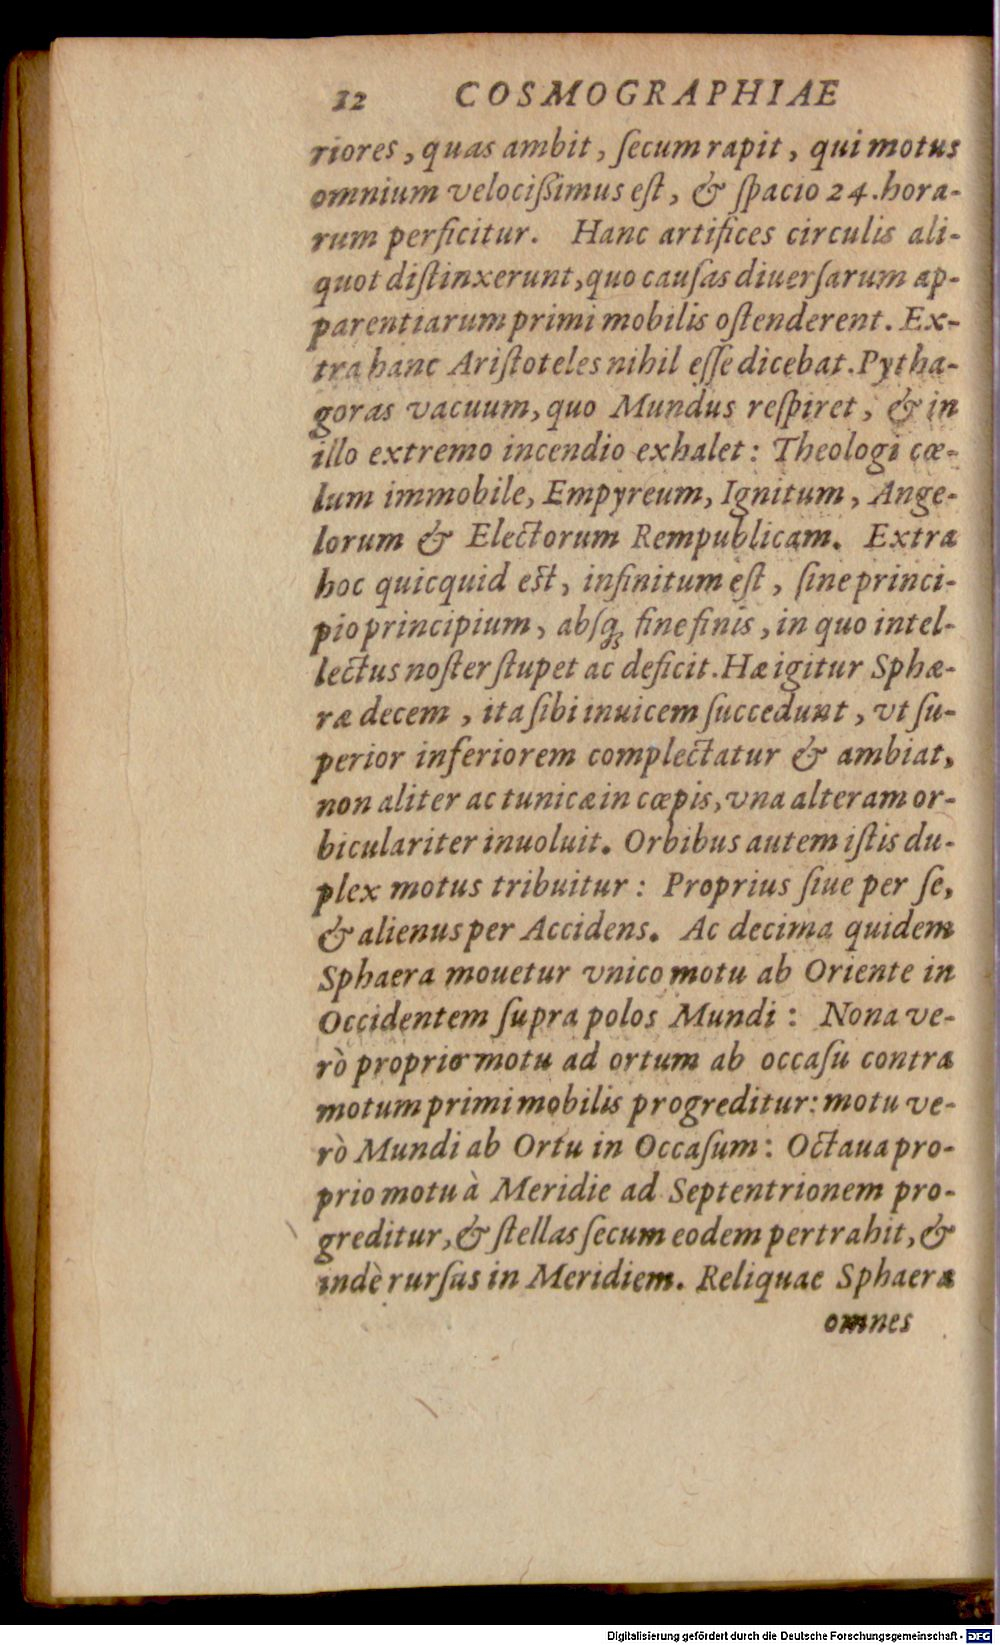 12 COSMOGRAPHIAE
riores, quas ambit, ſecum rapit, qui motus
omnium velociſsimus eſt, & ſpacio 24. hora-
rum perficitur. Hanc artifices circulis ali-
quot diſtinxerunt, quo cauſas diuerſarum ap-
parentiarum primi mobilis oſtenderent. Ex-
tra hanc Ariſtoteles nihil eſſe dicebat. Pytha-
goras vacuum, quo Mundus reſpiret, & in
illo extremo incendio exhalet: Theologi cœ-
lum immobile, Empyreum, Ignitum, Ange-
lorum & Electorum Rempublicam. Extra
hoc quicquid est, infinitum eſt, ſine princi-
pio principium, abſq; fine finis, in quo intel-
lectus noſter ſtupet ac deficit. Hæ igitur Sphæ-
ræ decem, ita ſibi inuicem ſuccedunt, vt ſu-
perior inferiorem complectatur & ambiat,
non aliter ac tunicæ in cœpis, vna alteram or-
biculariter inuoluit. Orbibus autem iſtis du-
plex motus tribuitur: Proprius ſiue per ſe,
& alienus per Accidens. Ac decima quidem
Sphaera mouetur vnico motu ab Oriente in
Occidentem ſupra polos Mundi: Nona ve-
rò proprio motu ad ortum ab occaſu contra
motum primi mobilis progreditur: motu ve-
rò Mundi ab Ortu in Occaſum: Octaua pro-
prio motu à Meridie ad Septentrionem pro-
greditur, & ſtellas ſecum eodem pertrahit, &
indè rurſus in Meridiem. Reliquae Sphaeræ
omnes
Digitalisierung gefördert durch die Deutsche Forschungsgemeinschaft - DFG